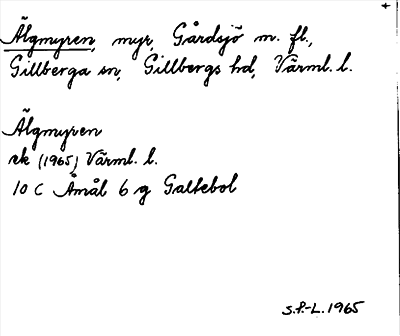 Älgmyren, myr, Gårdsjö m. fl.,
Gillberga sn, Gillbergs hd, Värml. l.
Älgmyren
ek (1965) Värml. l.
10 C Åmål 6 g Galtebol
S.P.-L. 1965